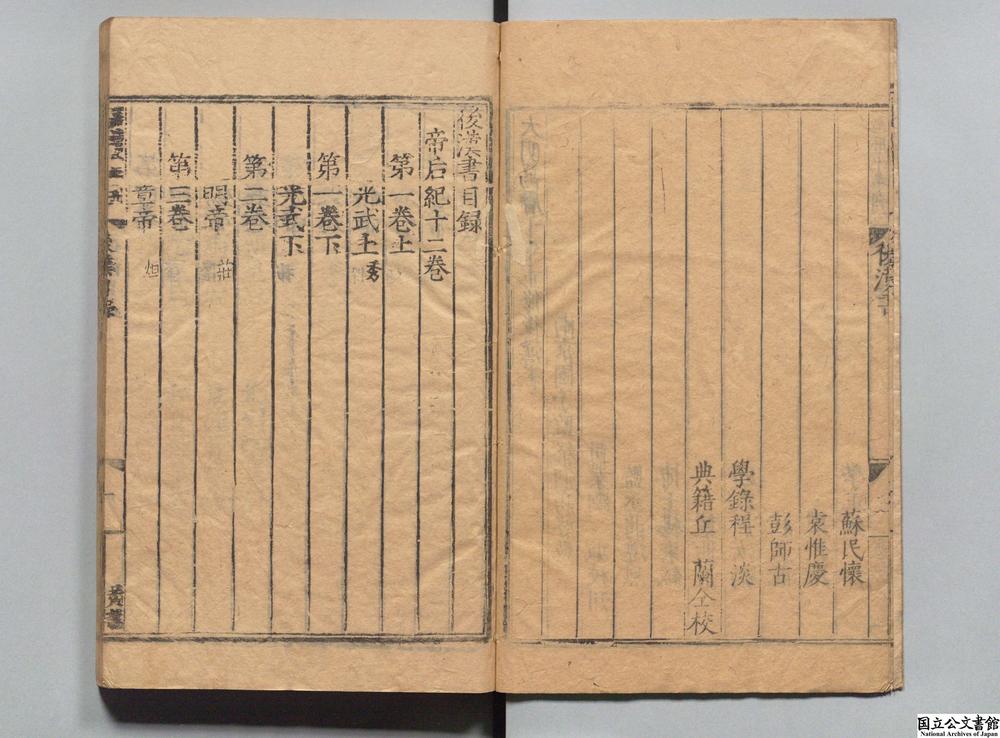 蘇民懷
袁惟慶
彭師古
學錄程 淡
典籍丘 蘭仝校
後漢書
後漢書目録
帝后紀十二卷
第一卷上
光武上 秀
第一卷下
光武下
第二卷
明帝 莊
第三卷
章帝 炟
国立公文書館
National Archives of Japan